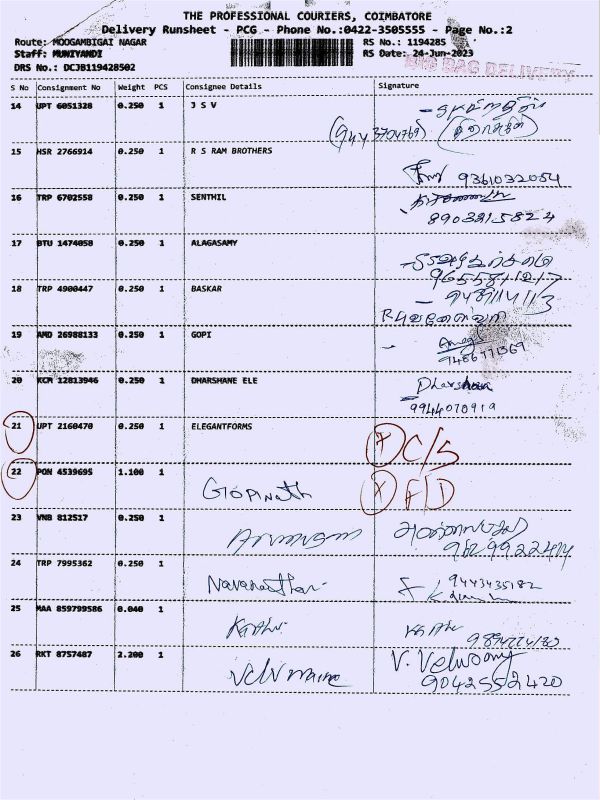 THE PROFESSIONAL COURIERS, COIMBATORE
Delivery Runsheet - PCG - Phone No.:0422-3505555 - Page No.:2
Route: MOOGAMBIGAI NAGAR RS No.: 1194285
Staff: MUNIYANDI RS Date: 24-Jun-2023
DRS No.: DCJB119428502 BIG BAG DELIVERY
S No Consignment No Weight PCS Consignee Details Signature
14 UPT 6051328 0.250 1 J S V
(9443704769)
15 HSR 2766914 0.250 1 R S RAM BROTHERS
9361032054
16 TRP 6702558 0.250 1 SENTHIL
8903215824
17 BTU 1474058 0.250 1 ALAGASAMY
9655811217
18 TRP 4900447 0.250 1 BASKAR
19 AMD 26988133 0.250 1 GOPI
9486771369
20 KCM 12813946 0.250 1 DHARSHANE ELE
9944070919
21 UPT 2160470 0.250 1 ELEGANTFORMS
C/S
22 PON 4539695 1.100 1
Gopinath
23 VNB 812517 0.250 1
24 TRP 7995362 0.250 1
9443435182
25 MAA 859799586 0.040 1
26 RKT 8757487 2.200 1
V. Velusamy
9042552420